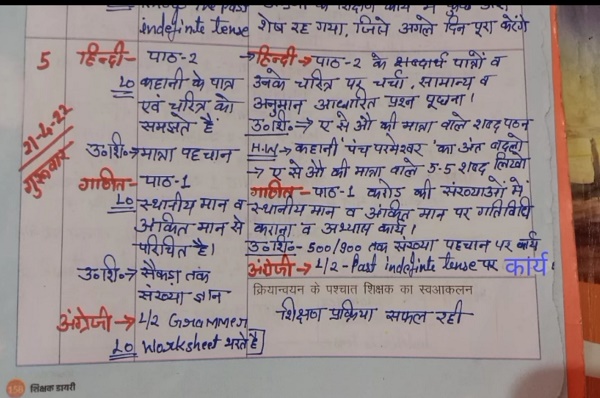 indefinite tense शेष रह गया, जिसे अगले दिन पूरा करेंगे
5
21-4-22
गुरूवार
हिन्दी- पाठ-2
LO कहानी के पात्र
एवं चरित्र को
समझते हैं
उ०शि०→ मात्रा पहचान
गणित- पाठ-1
LO स्थानीय मान व
अंकित मान से
परिचित है।
उ०शि०→ सैकड़ा तक
संख्या ज्ञान
अंग्रेजी→ L/2 Grammer
LO Worksheet भरते हैं
हिन्दी→ पाठ-2 के शब्दार्थ पात्रों व
उनके चरित्र पर चर्चा, सामान्य व
अनुमान आधारित प्रश्न पूछना।
उ०शि०→ ए से औ की मात्रा वाले शब्द पठन
H.W→ कहानी 'पंच परमेश्वर' का अंत बदलो
→ ए से औ की मात्रा वाले 5-5 शब्द लिखो
गणित- पाठ-1 करोड़ की संख्याओं में
स्थानीय मान व अंकित मान पर गतिविधि
कराना व अभ्यास कार्य।
उ०शि०- 500/900 तक संख्या पहचान पर कार्य
अंग्रेजी→ L/2-Past indefinite tense पर कार्य।
क्रियान्वयन के पश्चात शिक्षक का स्वआकलन
शिक्षण प्रक्रिया सफल रही
158 शिक्षक डायरी